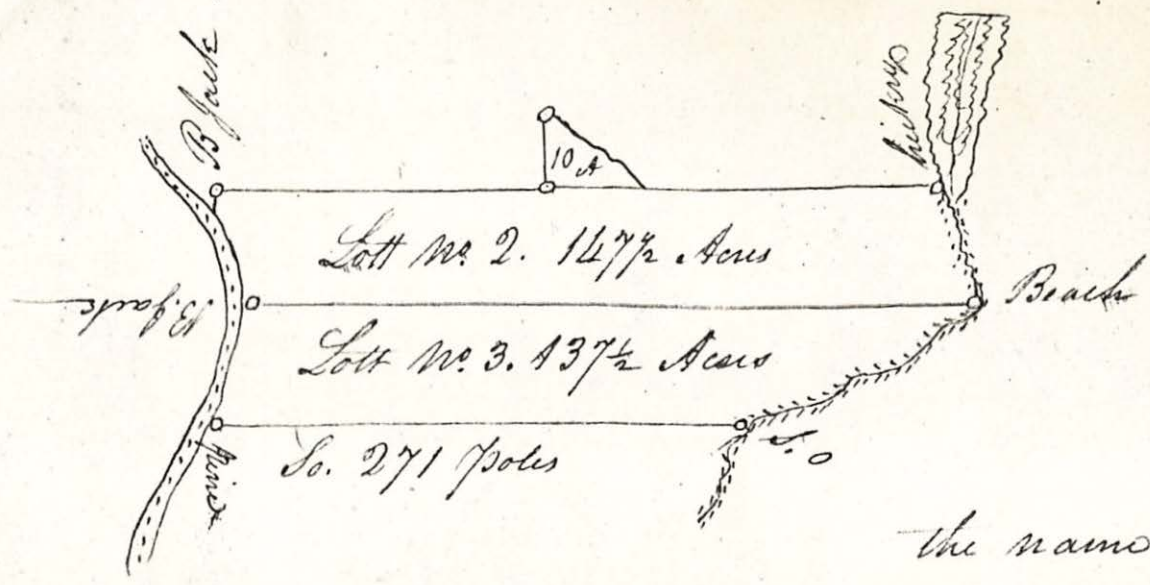 B Jack
hickory
10 A
Lott No. 2. 147½ Acres
B. Jack
Beach
Lott No. 3. 137½ Acres
pine
So. 271 Poles
S. O
the name